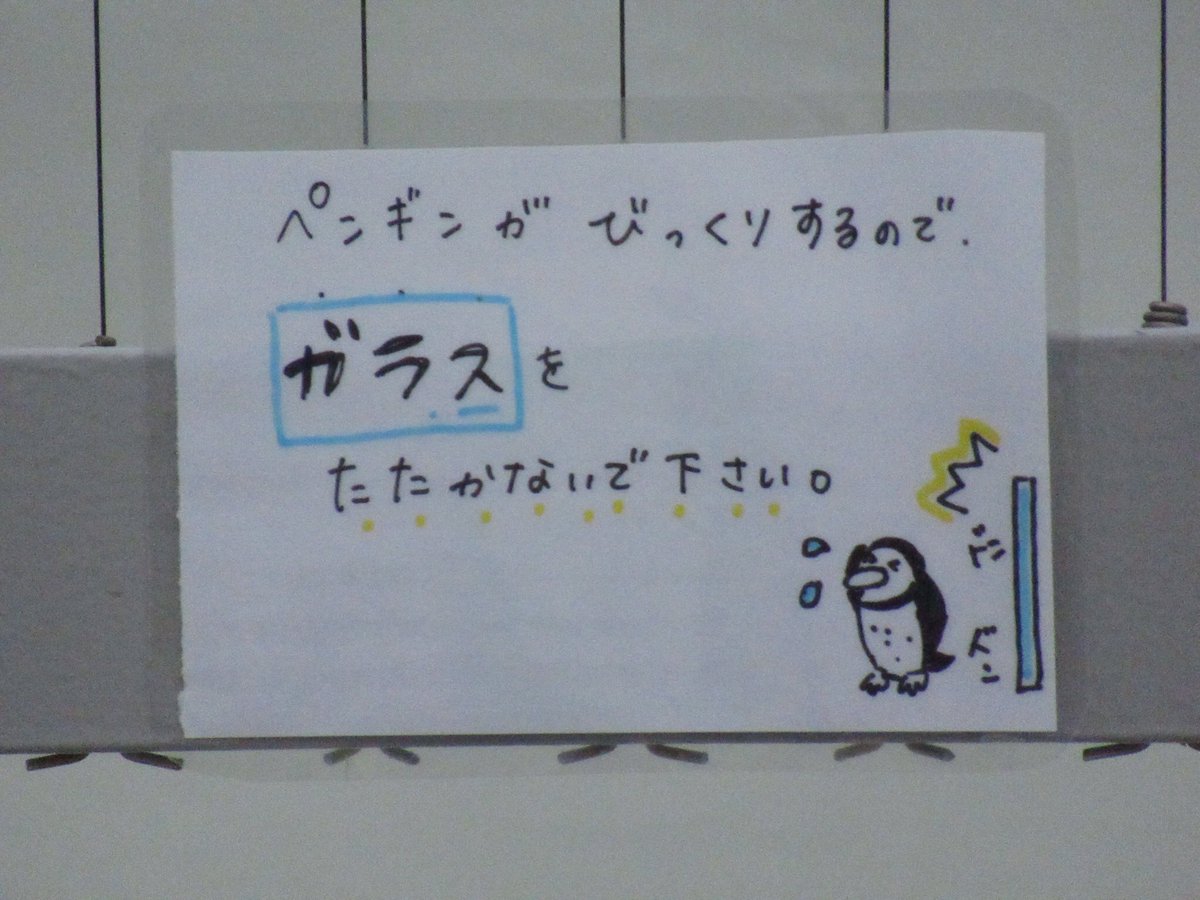 ペンギンがびっくりするので.
ガラスを
たたかないで下さい。
ドン